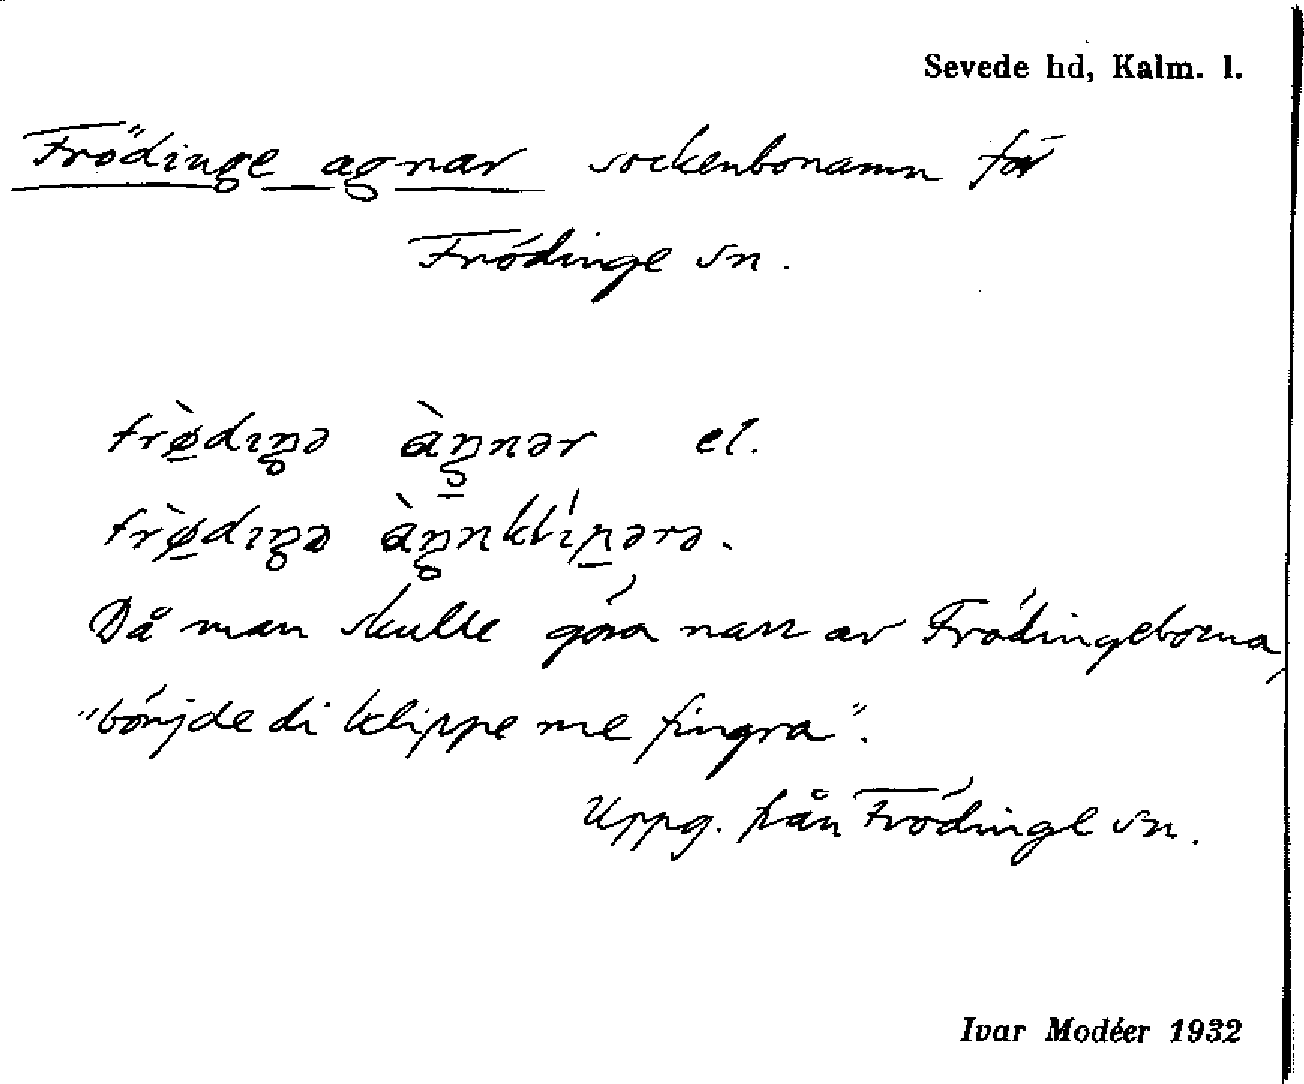 Sevede hd, Kalm. l.
Frödinge agnar sockenbonamn för
Frödinge sn.
frø̀dıŋə àŋnər el.
frø̀dıŋə àŋnklípərə.
Då man skulle göra narr av Frödingeborna,
"börjde di klippe me fingra".
Uppg. från Frödinge sn.
Ivar Modéer 1932